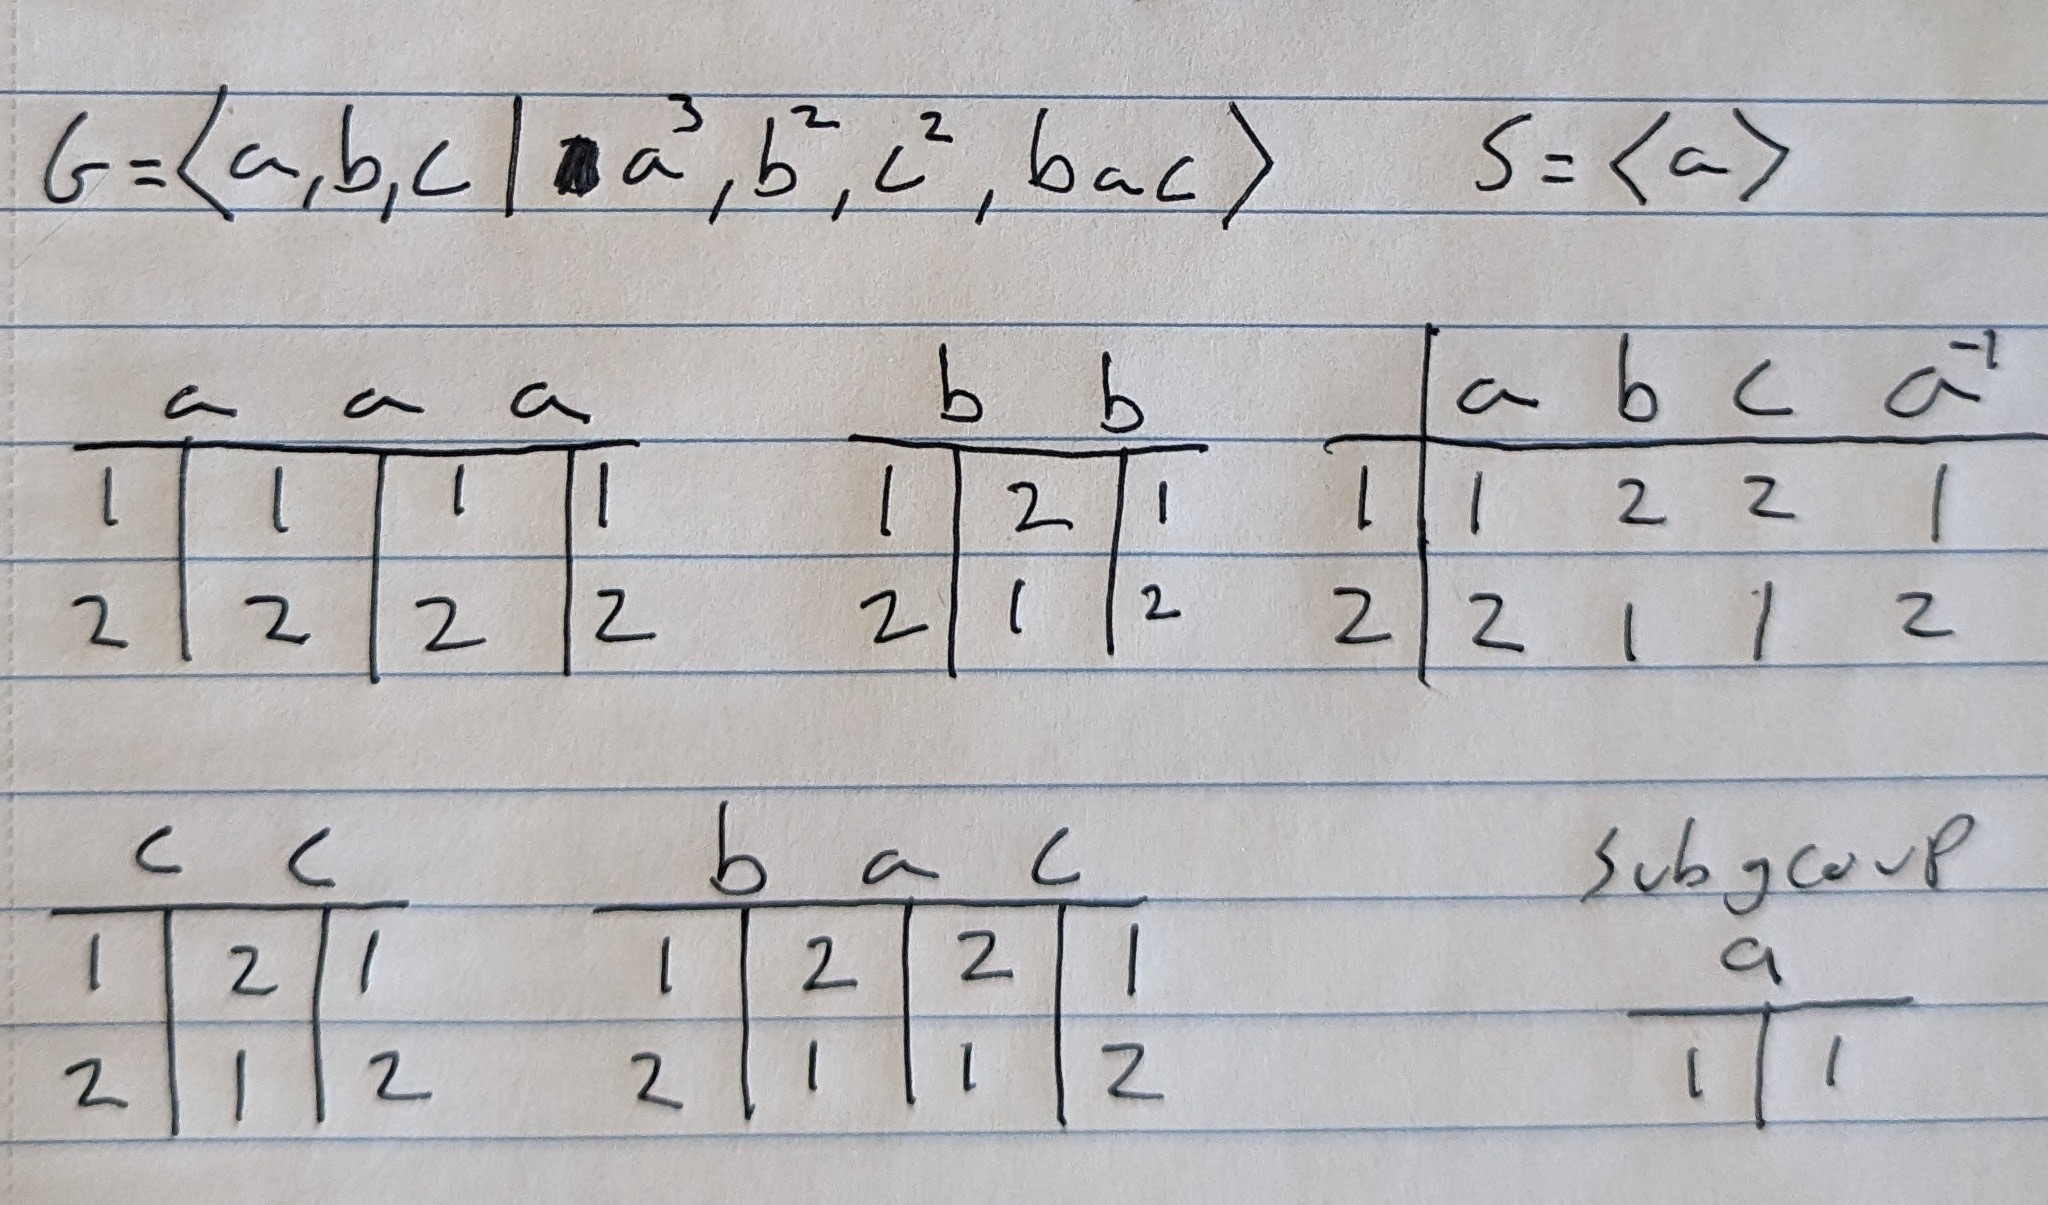 G=⟨a,b,c | a³,b²,c²,bac⟩ S=⟨a⟩
a a a
1 1 1 1
2 2 2 2
b b
1 2 1
2 1 2
a b c a⁻¹
1 1 2 2 1
2 2 1 1 2
c c
1 2 1
2 1 2
b a c
1 2 2 1
2 1 1 2
subgroup
a
1 1